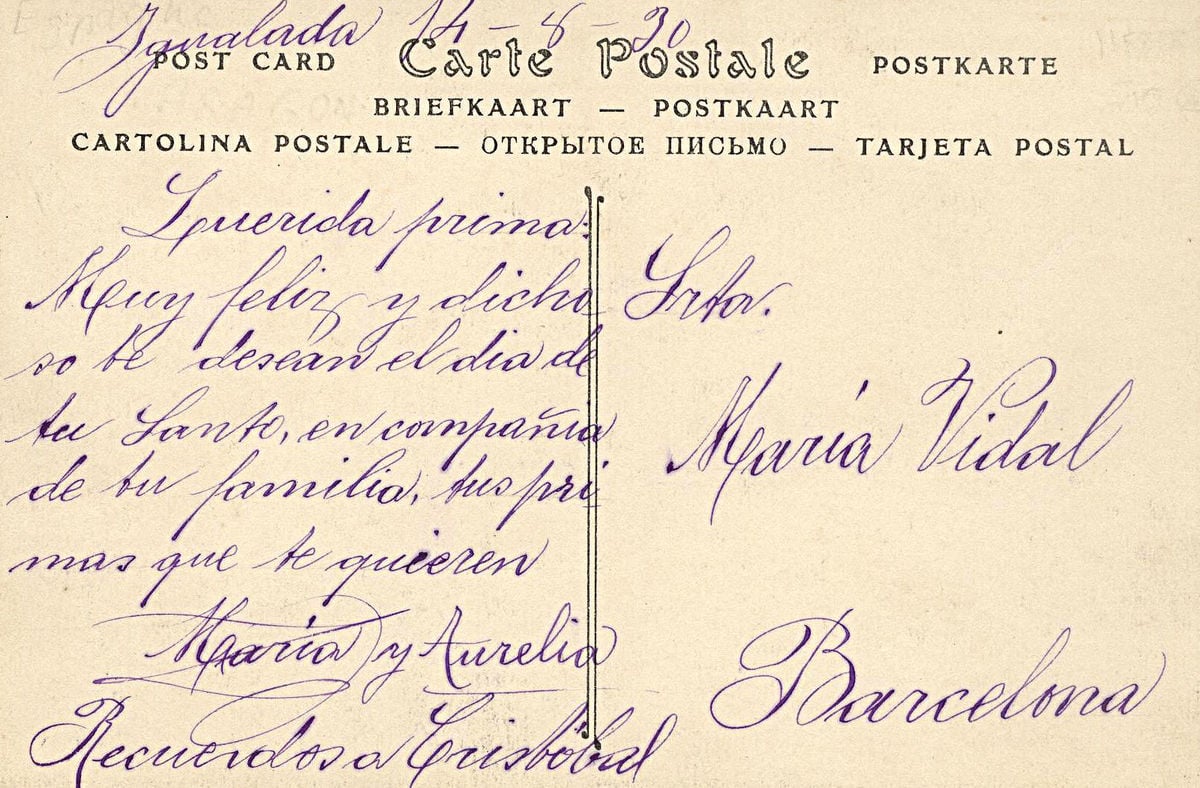 Igualada 14-8-30
POST CARD Carte Postale POSTKARTE
BRIEFKAART — POSTKAART
CARTOLINA POSTALE — ОТКРЫТОЕ ПИСЬМО — TARJETA POSTAL
Querida prima:
Muy feliz y dicho
so te desean el dia de
tu Santo, en compañia
de tu familia, tus pri
mas que te quieren
María y Aurelia
Recuerdos a Cristóbal
Srta.
María Vidal
Barcelona